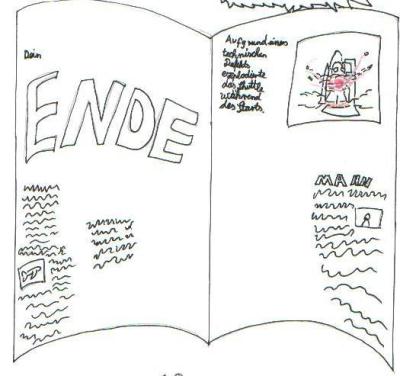 Dein
ENDE
Aufgrund eines
technischen
Defekts
explodierte
das Shuttle
während
des Starts.